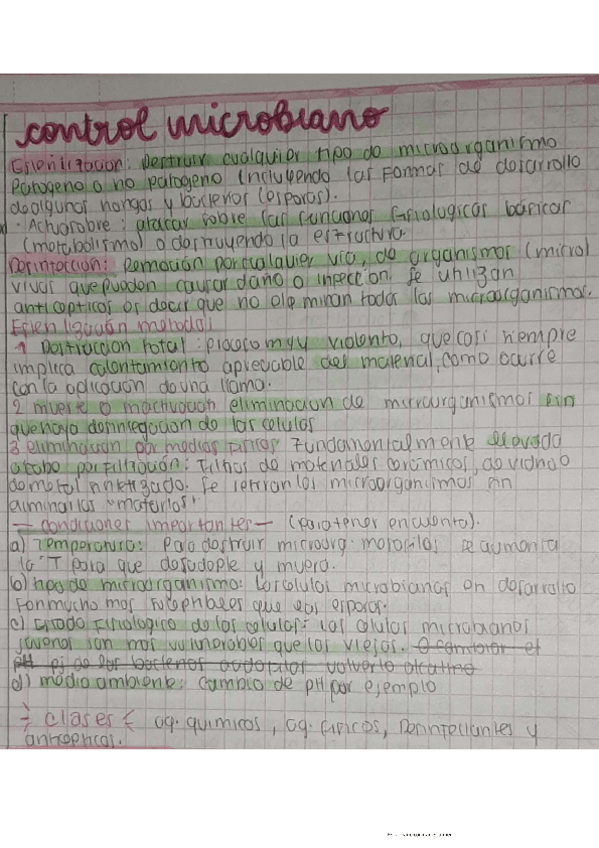 control microbiano
Esterilización: Destruir cualquier tipo de microorganismo
Patogeno o no patogeno (incluyendo las formas de desarrollo
de algunos hongos y bacterias (esporas).
· Actua sobre: atacar sobre las funciones fisiologicas básicas
(metabolismo) o destruyendo la estructura.
Desinfección: Remoción por cualquier vía, de organismos (micro)
vivos que puedan causar daño o infeccion. Se utilizan
antisepticos es decir que no eliminan todos los microorganismos.
Esterilización metodos:
1 Destruccion total: proceso muy violento, que casi siempre
implica calentamiento apreciable del material, como ocurre
con la aplicación de una llama.
2 muerte o inactivación eliminacion de microorganismos sin
que haya desintegración de las celulas
3 eliminación por medios físicos Fundamentalmente llevada
a cabo por filtración: filtros de materiales cerámicos, de vidrio o
de metal sintetizado. Se retiran los microorganismos sin
"matarlos"
— condiciones importantes — (Para tener en cuenta).
a) Temperatura: Para destruir microorg. mesofilos se aumenta
la T° para que y muera.
b) tipo de microorganismo: Las celulas microbianas en desarrollo
son mucho mas suceptibles que las esporas.
c) Estado fisiologico de las celulas: Las celulas microbianas
jovenes son mas vulnerables que las viejas. O cambiar el
pH ej de las bacterias acidofilas volverlo alcalino
d) medio ambiente: cambio de pH por ejemplo
clases { ag. quimicos, ag. fisicos, Desinfectantes y
antisepticos.